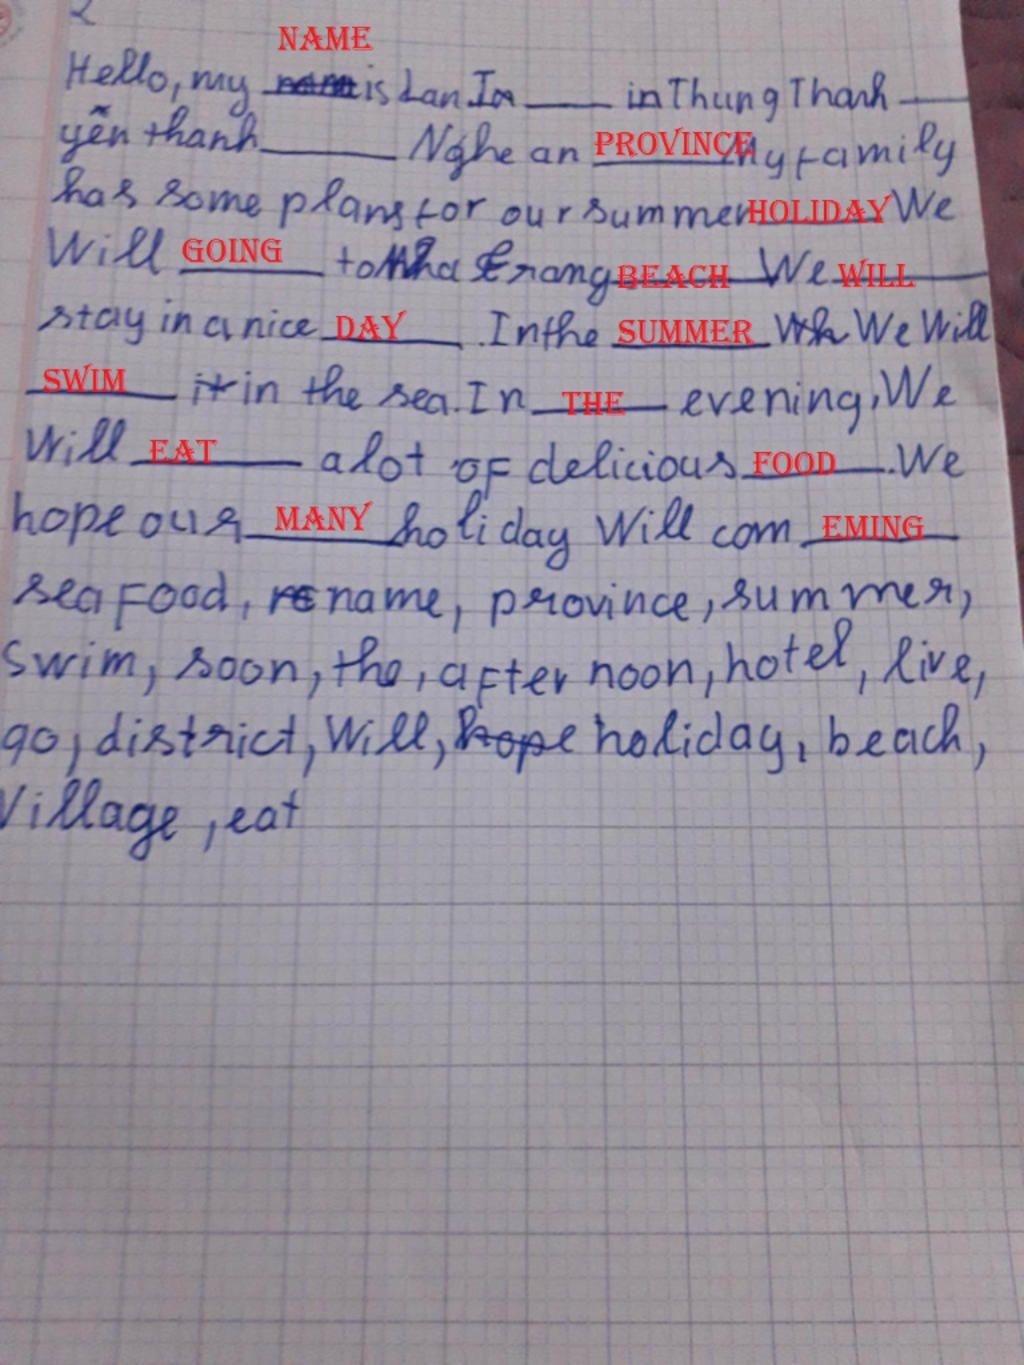 2
NAME
Hello, my ____ is Lan In ____ in Thung Thanh ____
yên thanh ____ Nghe an PROVINCE My family
has some plans for our summer HOLIDAY We
Will GOING to Nha trang BEACH We WILL
stay in a nice DAY . In the SUMMER We Will
SWIM it in the sea. In THE evening, We
Will EAT a lot of delicious FOOD . We
hope our MANY holiday Will com EMING
sea food, name, province, summer,
Swim, soon, the, after noon, hotel, live,
go, district, Will, hope holiday, beach,
Village, eat